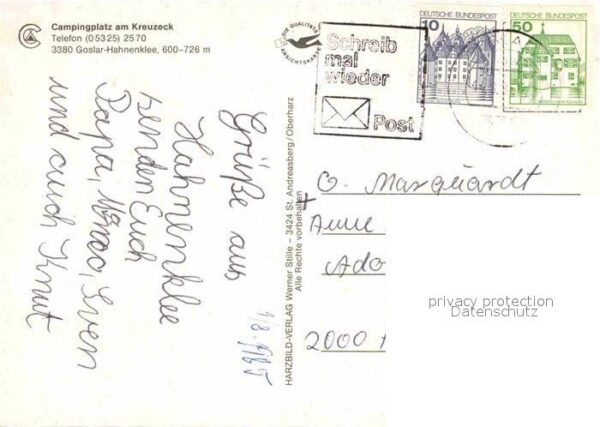 Campingplatz am Kreuzeck
Telefon (0 53 25) 25 70
3380 Goslar-Hahnenklee, 600–726 m
DIE QUALITÄTS
ANSICHTSKARTE
Schreib
mal
wieder
Post
10
DEUTSCHE BUNDESPOST
50
DEUTSCHE BUNDESPOST
Grüße aus
Hahnenklee
senden Euch
Papa, Sven
und auch Knut
1/8. 1985
HARZBILD-VERLAG Werner Stille – 3424 St. Andreasberg/Oberharz
Alle Rechte vorbehalten
O. Marquardt
+ Anne
Ado
2000
privacy protection
Datenschutz